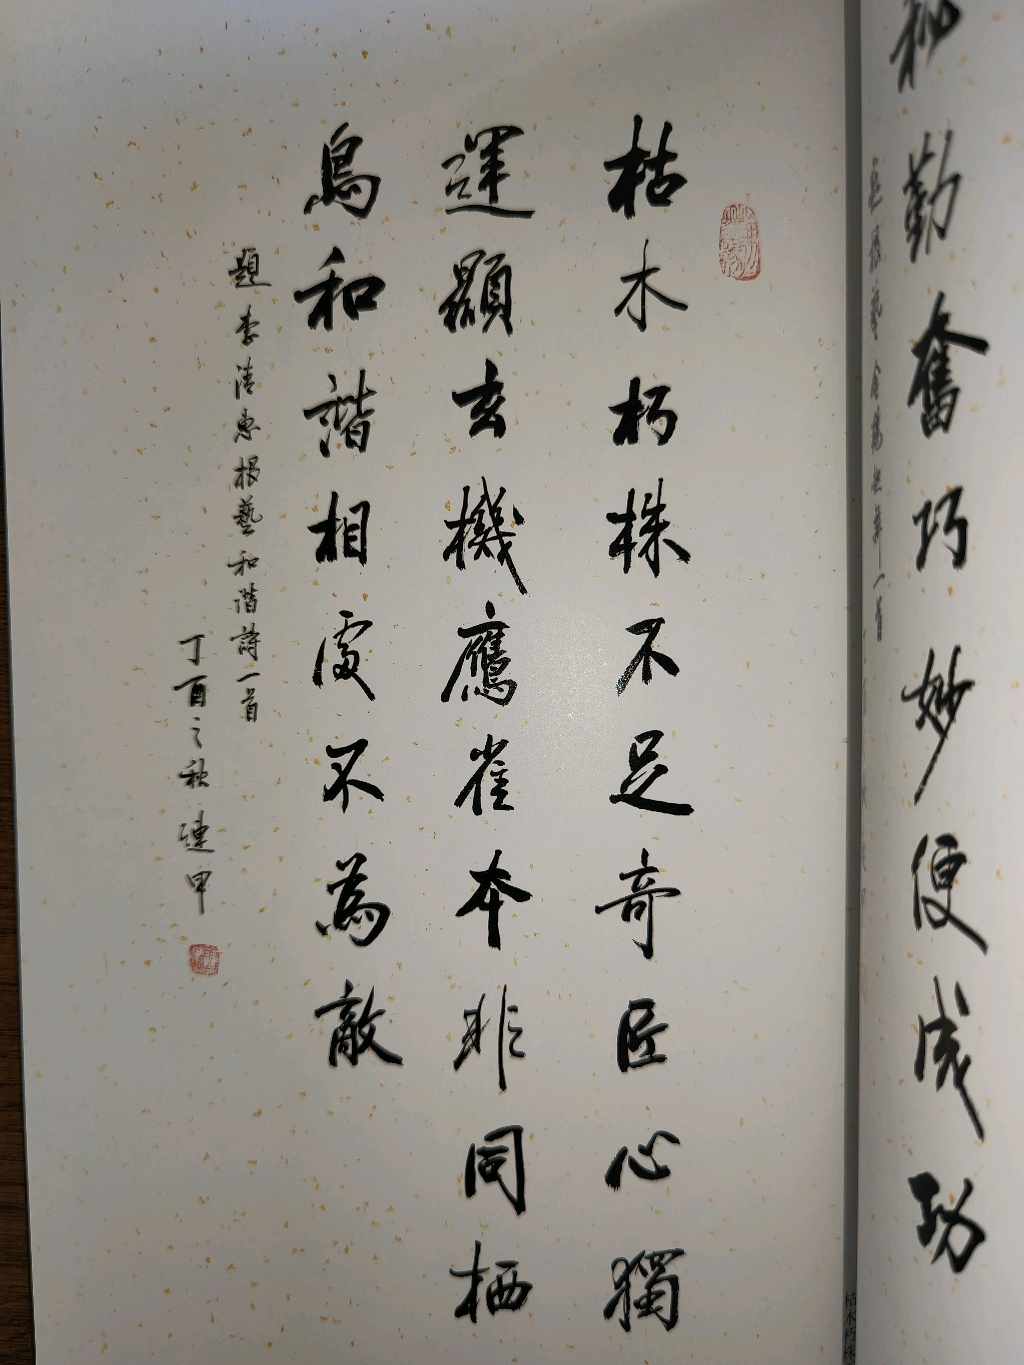 勤奮巧妙便成功
枯木朽株不足奇匠心獨
運顯玄機鷹雀本非同栖
鳥和諧相處不為敵
題李清惠根藝和諧詩一首
丁酉之秋連甲
枯木朽株